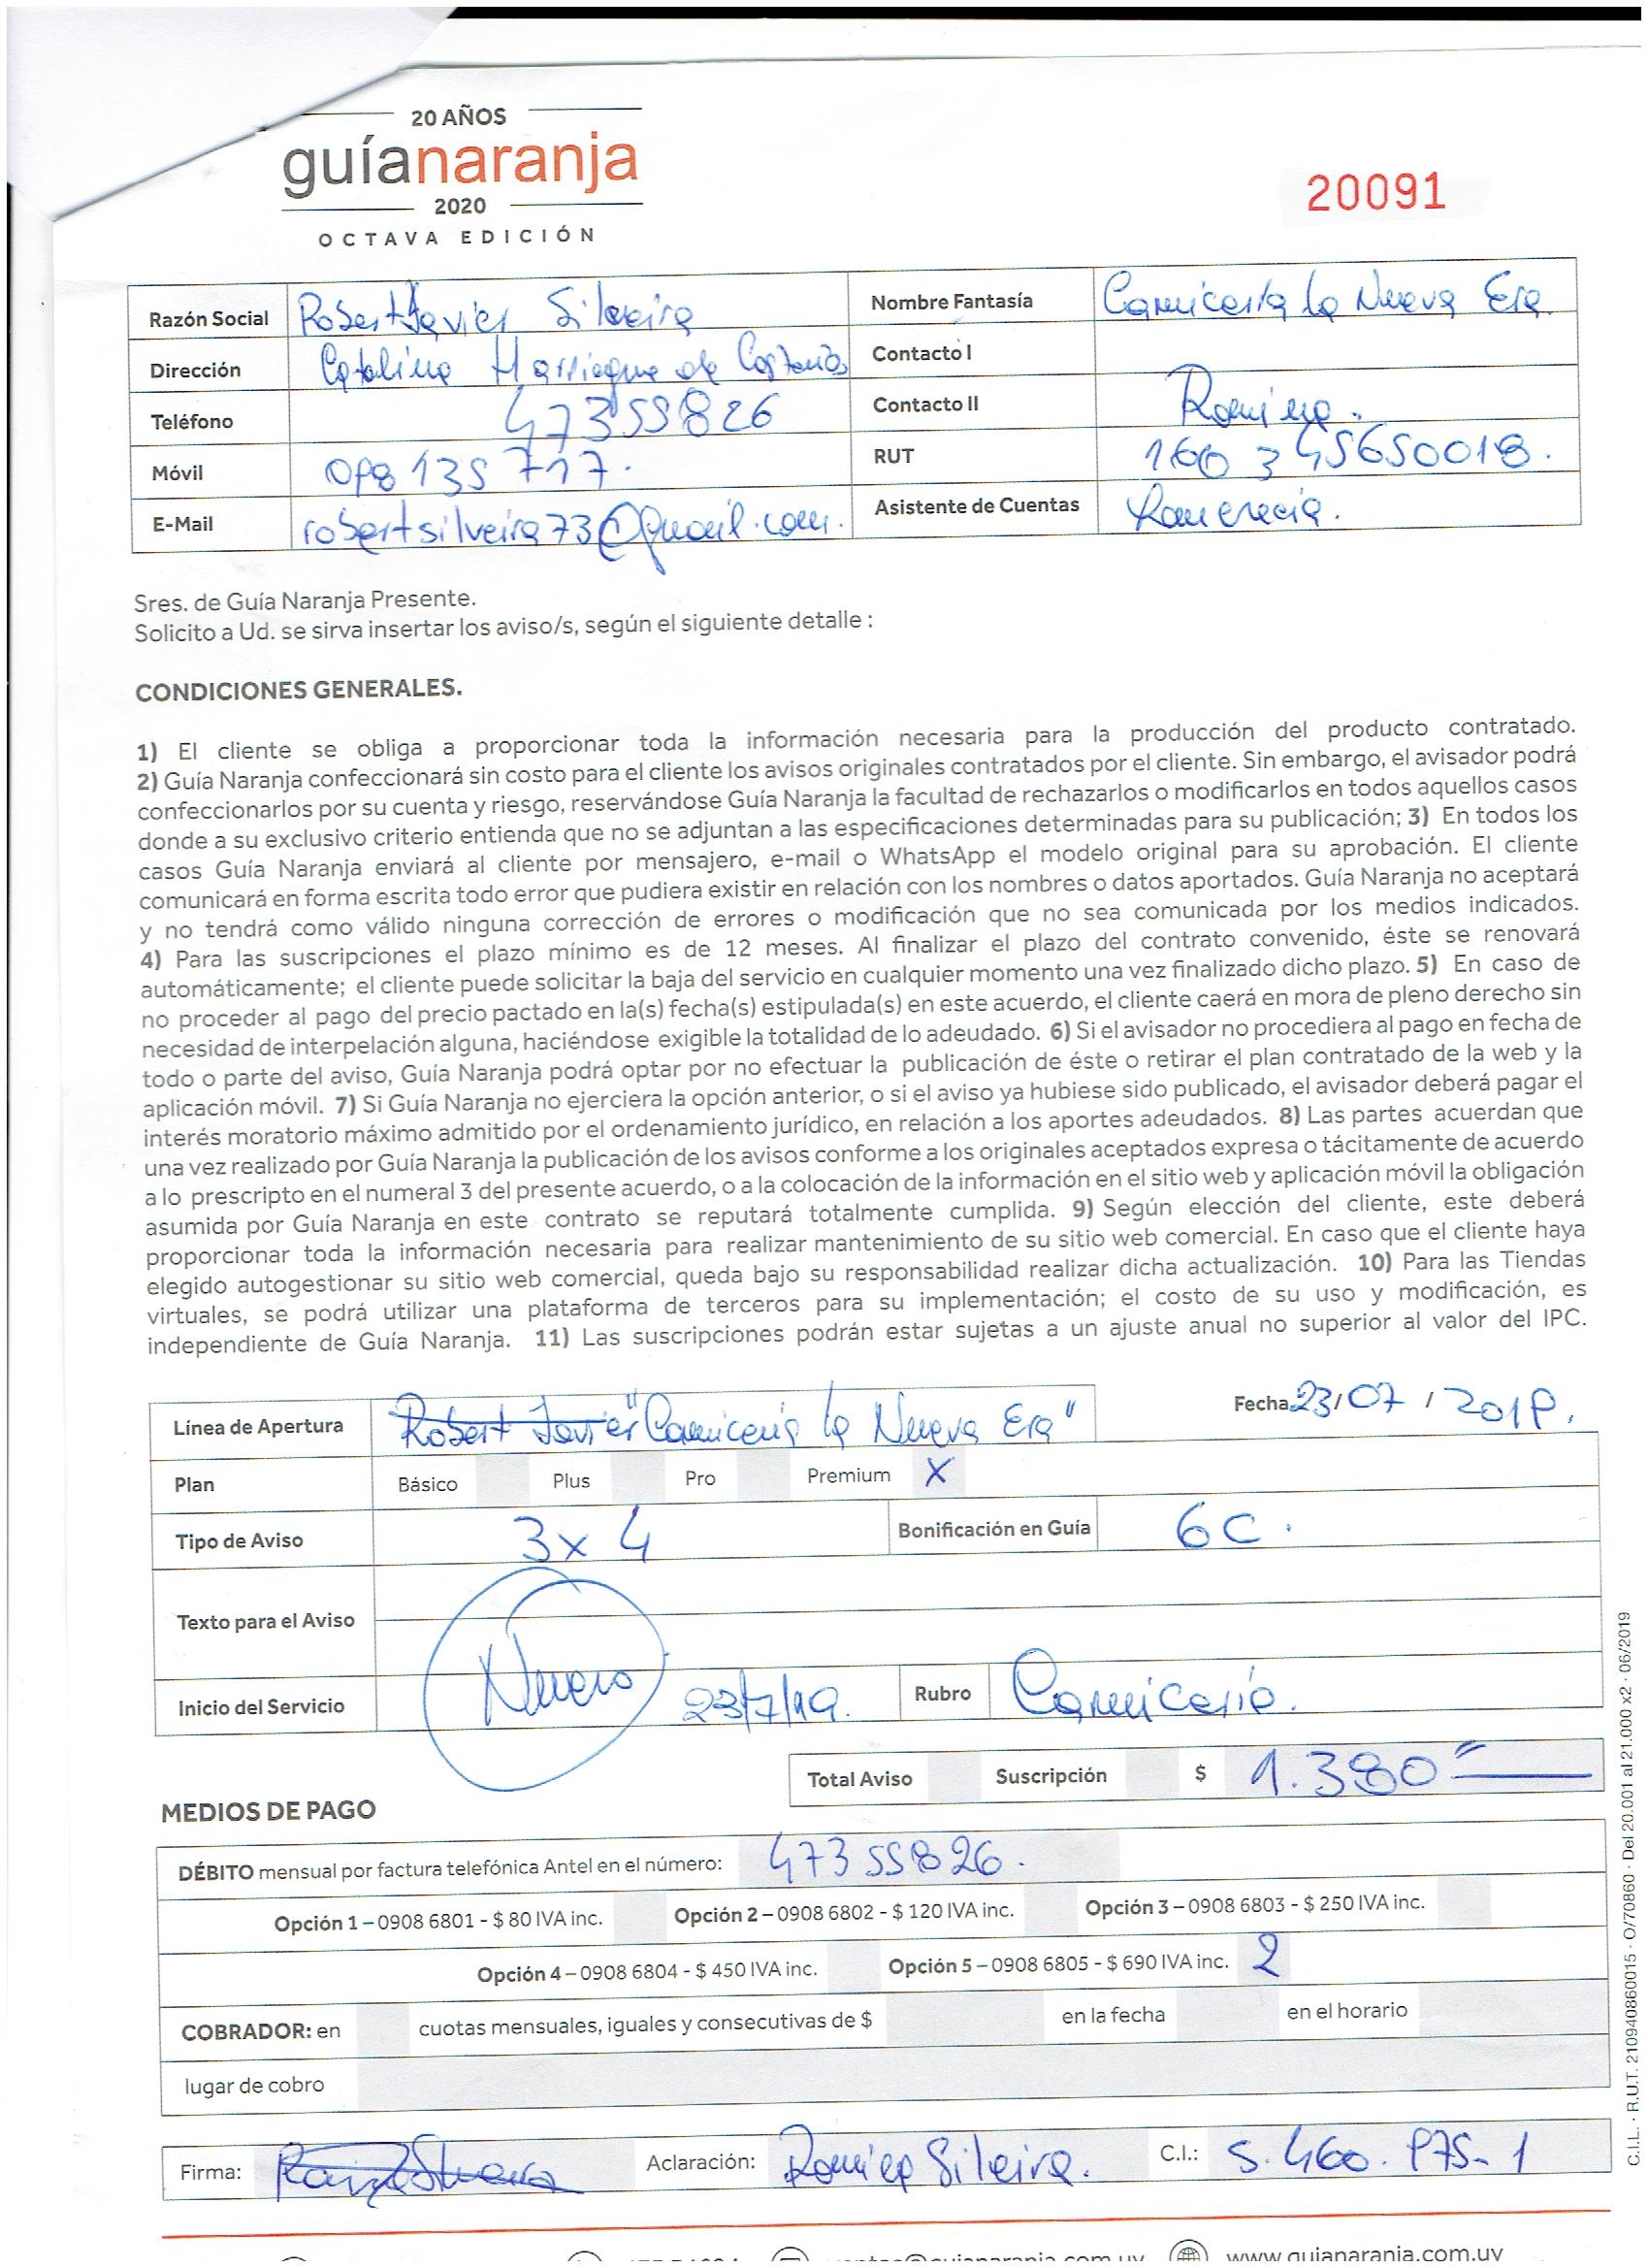 20 AÑOS
guíanaranja
2020
OCTAVA EDICIÓN
20091
Razón Social Robert Javier Silveira Nombre Fantasía Carnicería la Nueva Era
Dirección Catalina Harriague de Castaños Contacto I
Teléfono 47355826 Contacto II Romina.
Móvil 098 135 717. RUT 160345650018.
E-Mail robertsilveira73@gmail.com. Asistente de Cuentas
Sres. de Guía Naranja Presente.
Solicito a Ud. se sirva insertar los aviso/s, según el siguiente detalle :
CONDICIONES GENERALES.
1) El cliente se obliga a proporcionar toda la información necesaria para la producción del producto contratado.
2) Guía Naranja confeccionará sin costo para el cliente los avisos originales contratados por el cliente. Sin embargo, el avisador podrá
confeccionarlos por su cuenta y riesgo, reservándose Guía Naranja la facultad de rechazarlos o modificarlos en todos aquellos casos
donde a su exclusivo criterio entienda que no se adjuntan a las especificaciones determinadas para su publicación; 3) En todos los
casos Guía Naranja enviará al cliente por mensajero, e-mail o WhatsApp el modelo original para su aprobación. El cliente
comunicará en forma escrita todo error que pudiera existir en relación con los nombres o datos aportados. Guía Naranja no aceptará
y no tendrá como válido ninguna corrección de errores o modificación que no sea comunicada por los medios indicados.
4) Para las suscripciones el plazo mínimo es de 12 meses. Al finalizar el plazo del contrato convenido, éste se renovará
automáticamente; el cliente puede solicitar la baja del servicio en cualquier momento una vez finalizado dicho plazo. 5) En caso de
no proceder al pago del precio pactado en la(s) fecha(s) estipulada(s) en este acuerdo, el cliente caerá en mora de pleno derecho sin
necesidad de interpelación alguna, haciéndose exigible la totalidad de lo adeudado. 6) Si el avisador no procediera al pago en fecha de
todo o parte del aviso, Guía Naranja podrá optar por no efectuar la publicación de éste o retirar el plan contratado de la web y la
aplicación móvil. 7) Si Guía Naranja no ejerciera la opción anterior, o si el aviso ya hubiese sido publicado, el avisador deberá pagar el
interés moratorio máximo admitido por el ordenamiento jurídico, en relación a los aportes adeudados. 8) Las partes acuerdan que
una vez realizado por Guía Naranja la publicación de los avisos conforme a los originales aceptados expresa o tácitamente de acuerdo
a lo prescripto en el numeral 3 del presente acuerdo, o a la colocación de la información en el sitio web y aplicación móvil la obligación
asumida por Guía Naranja en este contrato se reputará totalmente cumplida. 9) Según elección del cliente, este deberá
proporcionar toda la información necesaria para realizar mantenimiento de su sitio web comercial. En caso que el cliente haya
elegido autogestionar su sitio web comercial, queda bajo su responsabilidad realizar dicha actualización. 10) Para las Tiendas
virtuales, se podrá utilizar una plataforma de terceros para su implementación; el costo de su uso y modificación, es
independiente de Guía Naranja. 11) Las suscripciones podrán estar sujetas a un ajuste anual no superior al valor del IPC.
Línea de Apertura Robert Javier "Carnicería la Nueva Era" Fecha 23/07/2019.
Plan Básico Plus Pro Premium X
Tipo de Aviso 3x4 Bonificación en Guía 6C.
Texto para el Aviso
Inicio del Servicio Nuevo 23/7/19. Rubro Carnicería.
Total Aviso Suscripción $ 1.380
MEDIOS DE PAGO
DÉBITO mensual por factura telefónica Antel en el número: 47355826.
Opción 1 – 0908 6801 - $ 80 IVA inc. Opción 2 – 0908 6802 - $ 120 IVA inc. Opción 3 – 0908 6803 - $ 250 IVA inc.
Opción 4 – 0908 6804 - $ 450 IVA inc. Opción 5 – 0908 6805 - $ 690 IVA inc. 2
COBRADOR: en cuotas mensuales, iguales y consecutivas de $ en la fecha en el horario
lugar de cobro
Firma: Aclaración: Romina Silveira. C.I.: 5.460.975-1
www.guianaranja.com.uy
C.I.L. · R.U.T. 210940860015 · O/70860 · Del 20.001 al 21.000 x2 · 06/2019